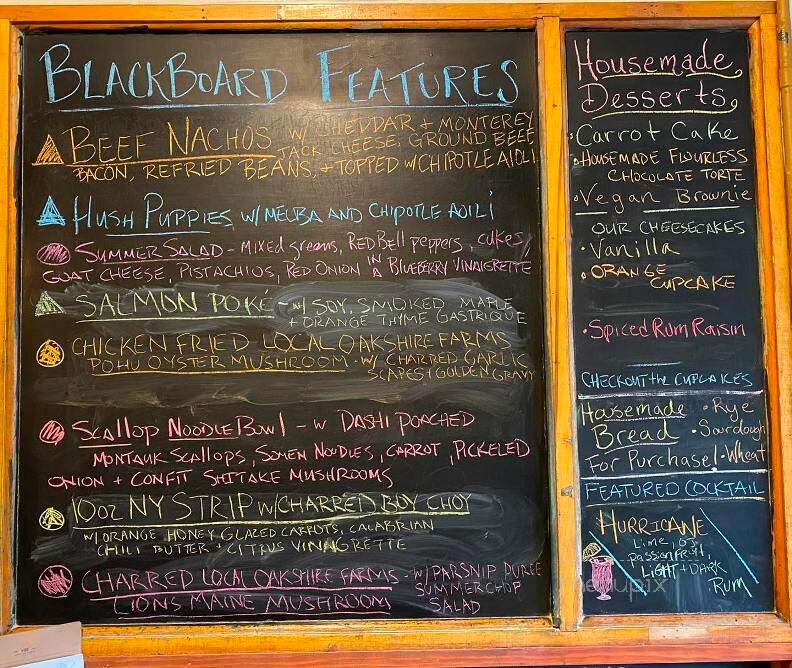 BLACKBOARD FEATURES
BEEF NACHOS W/ CHEDDAR + MONTEREY
JACK CHEESE, GROUND BEEF
BACON, REFRIED BEANS, + TOPPED W/CHIPOTLE AIOLI
HUSH PUPPIES W/ MELBA AND CHIPOTLE AOILI
SUMMER SALAD - MIXED greens, RED Bell peppers, cukes,
GOAT CHEESE, PISTACHIOS, RED ONION IN A BLUEBERRY VINAIGRETTE
SALMON POKE - W/ SOY, SMOKED MAPLE
+ ORANGE THYME GASTRIQUE
CHICKEN FRIED LOCAL OAKSHIRE FARMS
POHU OYSTER MUSHROOM - W/ CHARRED GARLIC
SCAPES + GOLDEN GRAVY
SCAllOP NOODLE BOWl - W DASHI POACHED
MONTAUK SCALLOPS, SOMEN NOODLES, CARROT, PICKELED
ONION + CONFIT SHITAKE MUSHROOMS
10oz NY STRIP W/CHARRED BOY CHOY
W/ ORANGE HONEY GLAZED CARROTS, CALABRIAN
CHILI BUTTER + CITRUS VINAGRETTE
CHARRED LOCAL OAKSHIRE FARMS - W/ PARSNIP PUREE
LIONS MAINE MUSHROOM SUMMER CHOP
SALAD
Housemade
Desserts,
·Carrot Cake
·HOUSEMADE FLOURLESS
CHOCOLATE TORTE
·Vegan Brownie
OUR CHEESECAKES
·Vanilla
·ORANGE
CUPCAKE
·Spiced Rum Raisin
CHECKOUT the CUPCAKES
Housemade ·Rye
Bread ·Sourdough
For Purchase! ·Wheat
FEATURED COCKTAIL
HURRICANE
Lime, OJ,
PASSIONFRUIT,
LIGHT + DARK
Rum
menupix